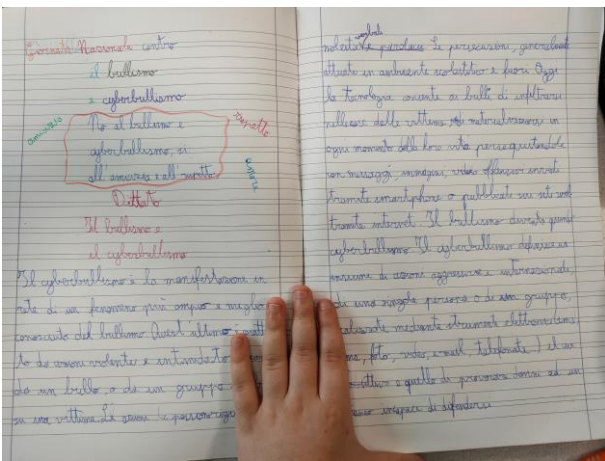 Giornata Nazionale contro
il bullismo
e cyberbullismo
amicizia
No al bullismo e
cyberbullismo, si
all'amicizia e all'
rispetto
amore
Dettato
Il bullismo e
il cyberbullismo
Il cyberbullismo è la manifestazione in
rete di un fenomeno più ampio e meglio
conosciuto del bullismo Quest'ultimo è
to da azioni violente e intimidato
da un bullo, o da un gruppo
su una vittima. Le azioni
verbali
Le persecuzioni,
attuate in ambiente scolastico e fuori Oggi
la tecnologia ai bulli di infiltrarsi
nelle case delle vittime di materializzarsi in
ogni momento della loro vita perseguitandole
con messaggi, immagini, video offensivi inviati
tramite smartphone o pubblicati sui siti web
tramite internet. Il bullismo diventa quindi
cyberbullismo Il cyberbullismo definisce un
insieme di azioni aggressive e intenzionali,
di una singola persona o di un gruppo,
mediante strumenti elettronici
foto, video, e-mail, telefonate) il cui
è quello di provocare danni ad un
incapace di difendersi